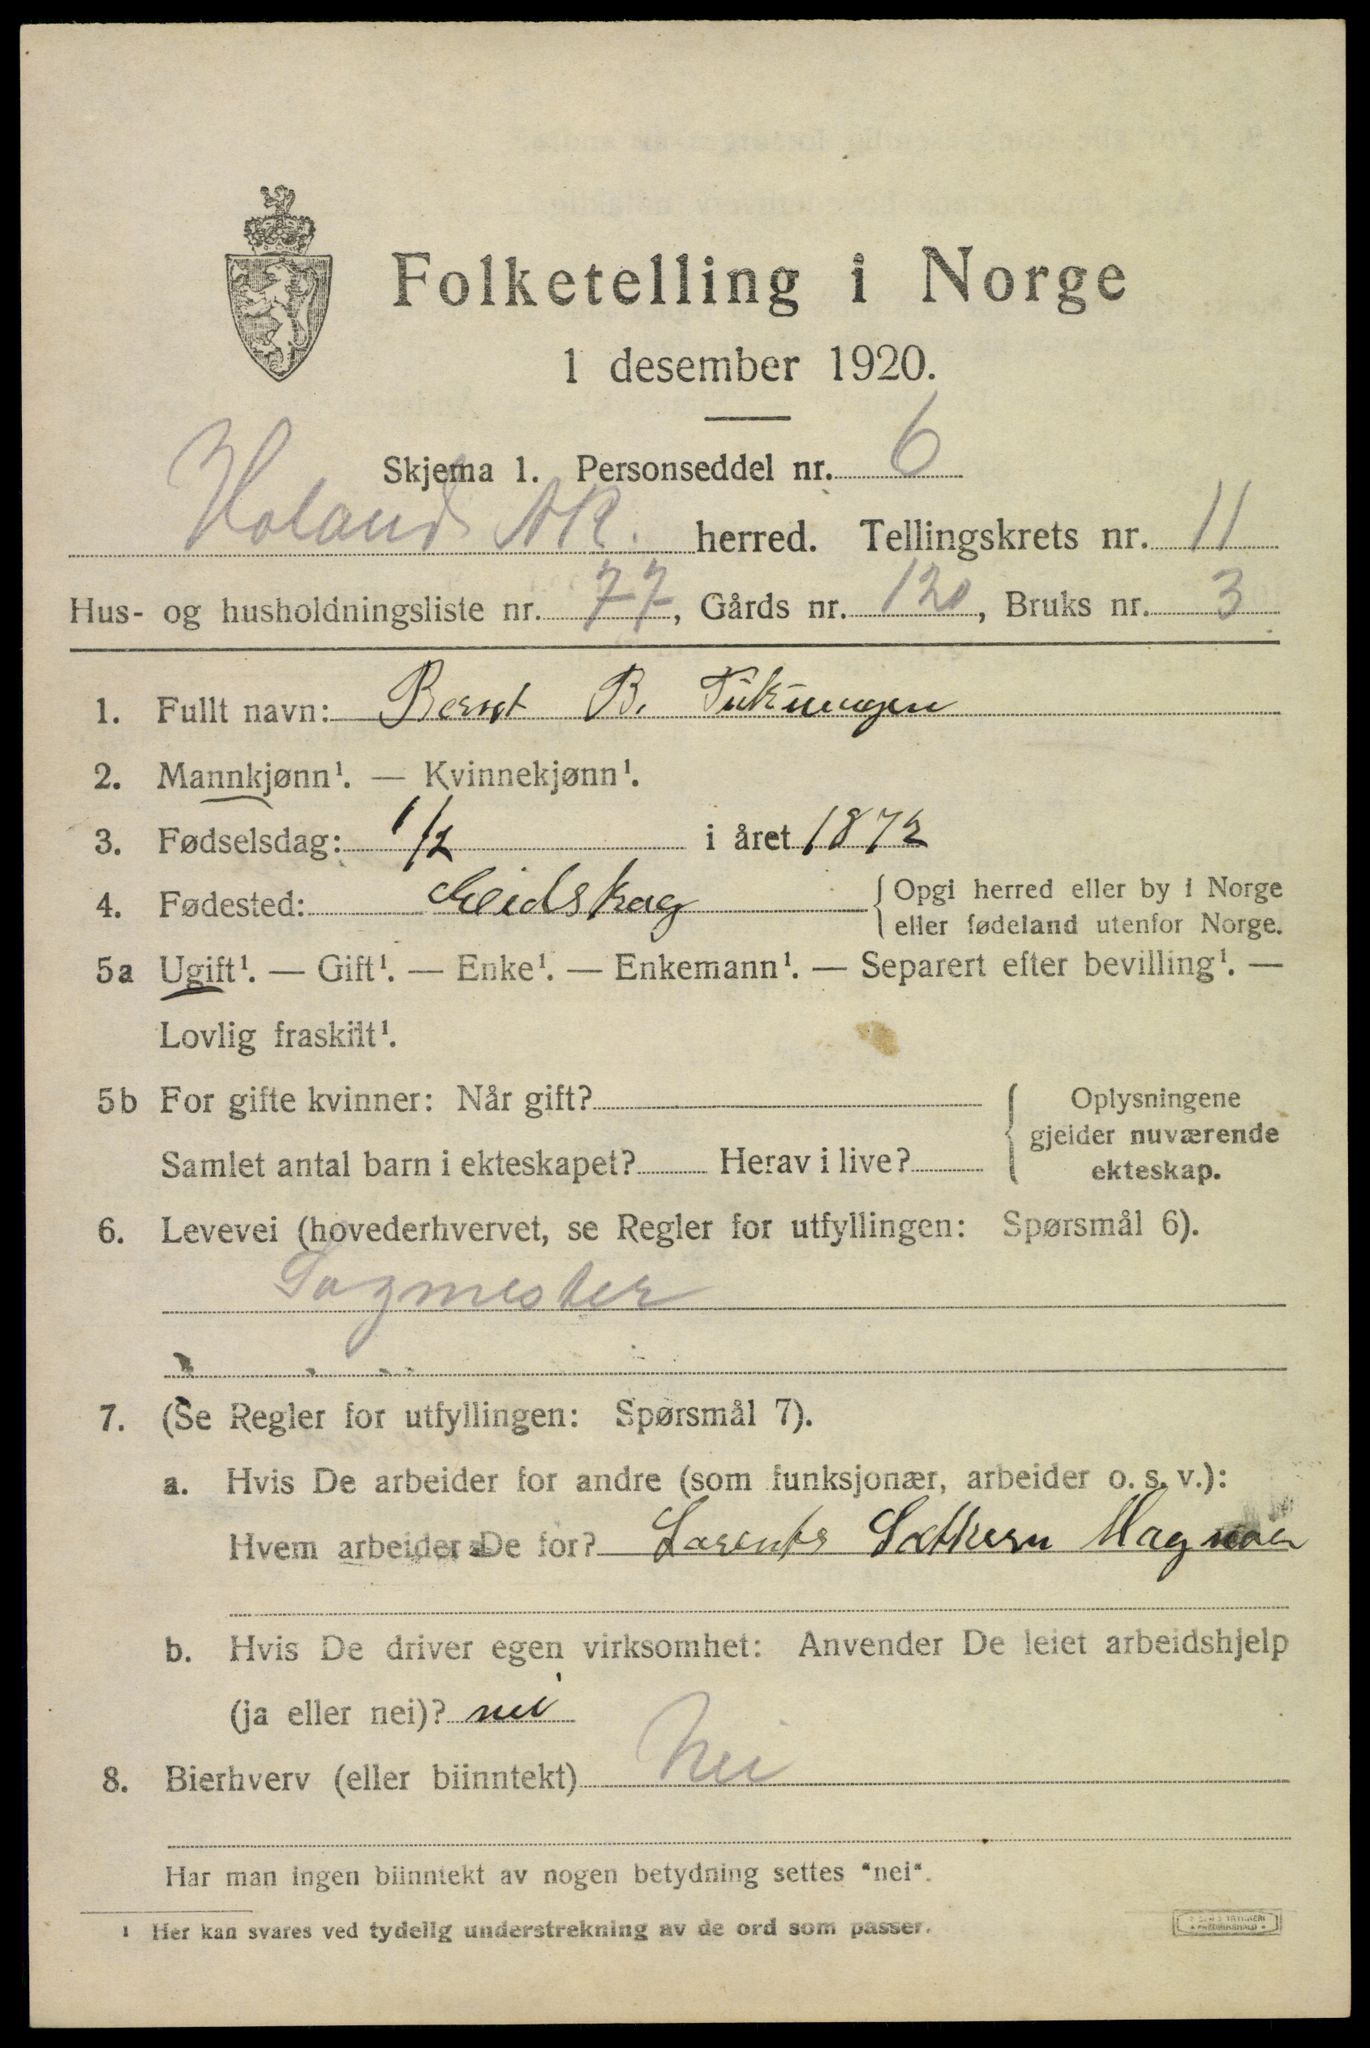 Folketelling i Norge
1 desember 1920.
Skjema 1. Personseddel nr. 6
Høland AK. herred. Tellingskrets nr. 11
Hus- og husholdningsliste nr. 77, Gårds nr. 120, Bruks nr. 3
1. Fullt navn: Bernt B.
2. Mannkjønn¹. — Kvinnekjønn¹.
3. Fødselsdag: 1/2 i året 1872
4. Fødested: Eidskog
{Opgi herred eller by i Norge
eller fødeland utenfor Norge.
5a Ugift¹. — Gift¹. — Enke¹. — Enkemann¹. — Separert efter bevilling¹. —
Lovlig fraskilt¹.
5b For gifte kvinner: Når gift?
Samlet antal barn i ekteskapet? Herav i live?
{Oplysningene
gjelder nuværende
ekteskap.
6. Levevei (hovederhvervet, se Regler for utfyllingen: Spørsmål 6).
Sagmester
7. (Se Regler for utfyllingen: Spørsmål 7).
a. Hvis De arbeider for andre (som funksjonær, arbeider o. s. v.):
Hvem arbeider De for?
b. Hvis De driver egen virksomhet: Anvender De leiet arbeidshjelp
(ja eller nei)? nei
8. Bierhverv (eller biinntekt) Nei
Har man ingen biinntekt av nogen betydning settes "nei".
¹ Her kan svares ved tydelig understrekning av de ord som passer.